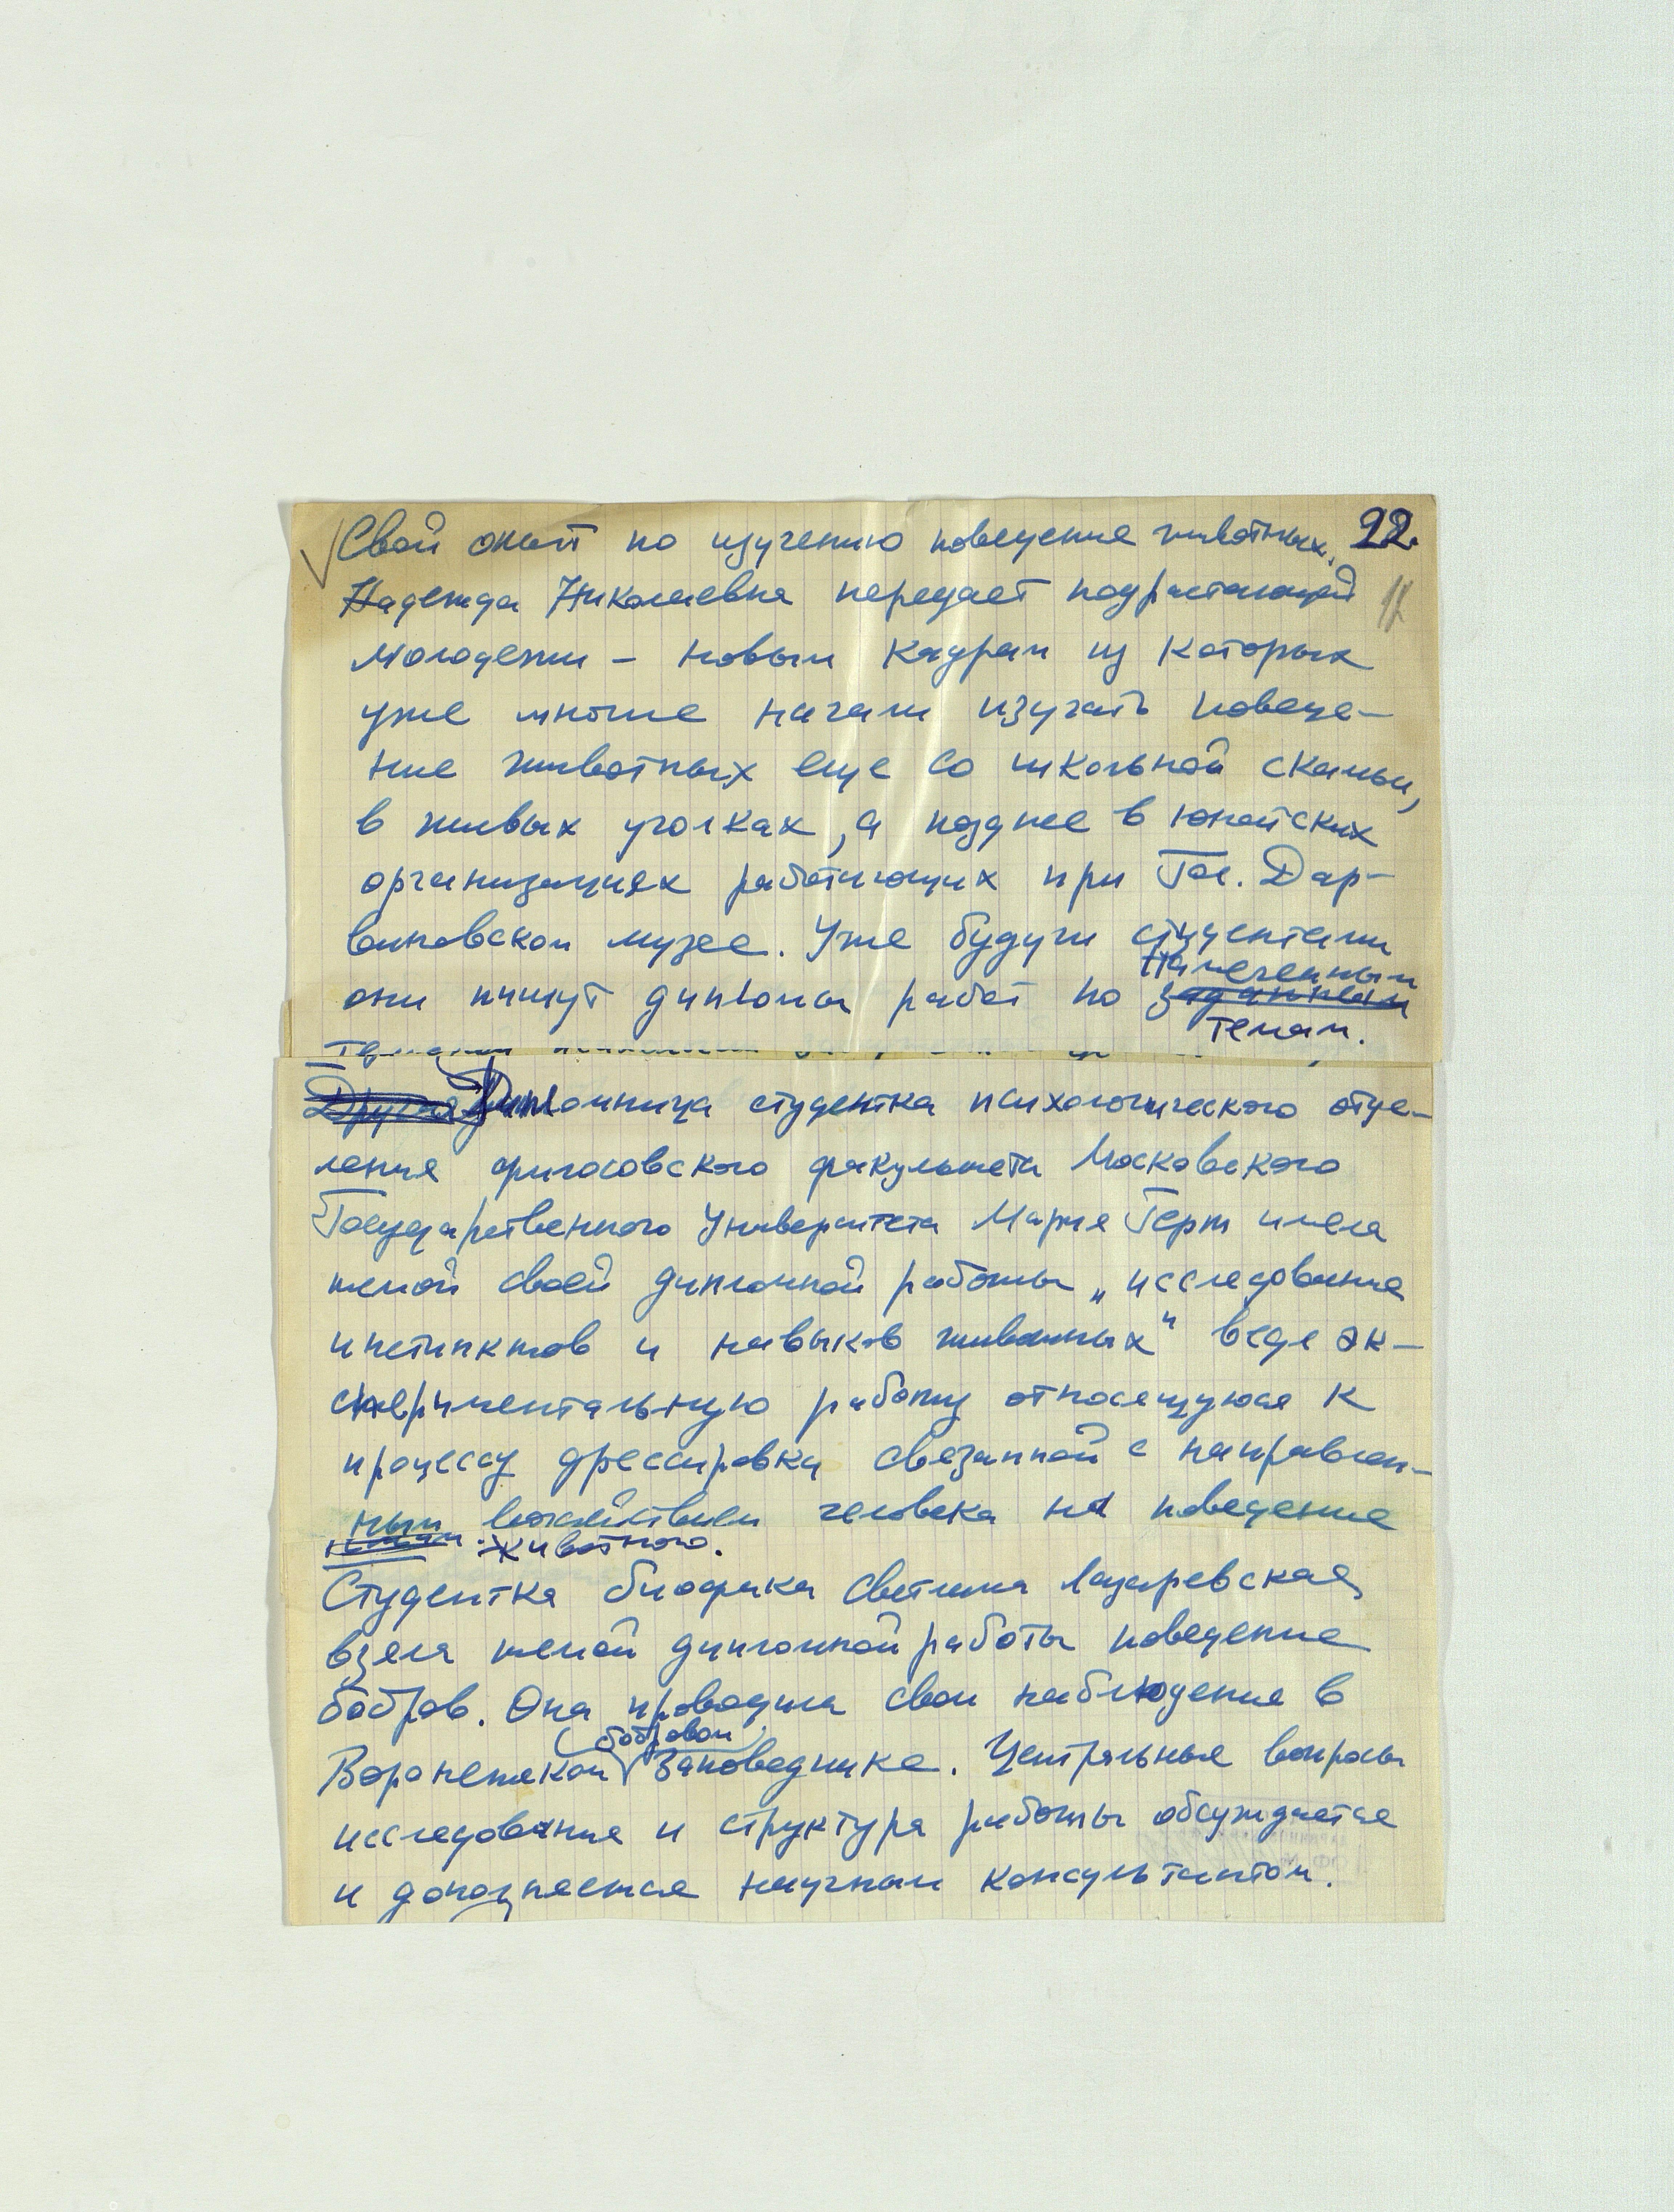 Свой опыт по изучению поведения животных, 22.
Надежда Николаевна передает подрастающей 12
молодежи – новым кадрам из которых
уже многие начали изучать поведе-
ние животных еще со школьной скамьи,
в живых уголках, а позднее в юнатских
организациях работающих при Гос. Дар-
виновском музее. Уже будучи студентами
намеченным
они пишут дипломы работ по заданным
темам.
Другая Дипломница студентка психологического отде-
ления философского факультета Московского
Государственного Университета Мария Герт имела
темой своей дипломной работы „исследование
инстинктов и навыков животных" веде эк-
спериментальную работу относящуюся к
процессу дрессировки связанной с направлен-
ным воздействием человека на поведение
животного.
Студентка биофака Светлана Лазаревская
взяла темой дипломной работы поведение
бобров. Она проводила свои наблюдения в
бобровом
Воронежском Заповеднике. Центральные вопросы
исследования и структура работы обсуждается
и дополняется научным консультантом.